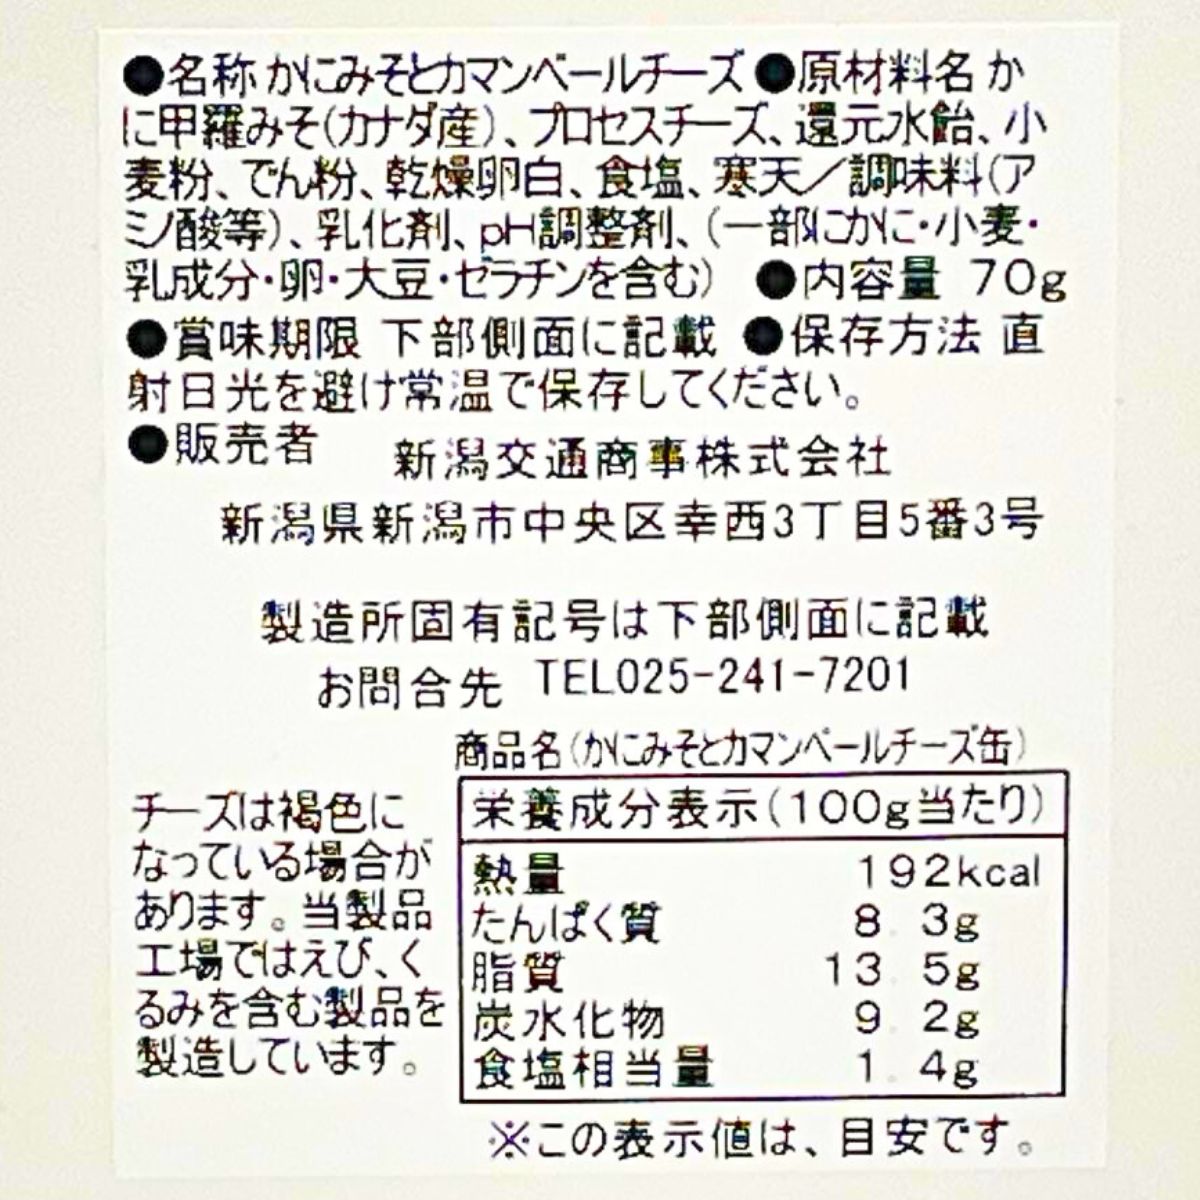 ●名称 かにみそとカマンベールチーズ ●原材料名 か
に甲羅みそ(カナダ産)、プロセスチーズ、還元水飴、小
麦粉、でん粉、乾燥卵白、食塩、寒天／調味料(ア
ミノ酸等)、乳化剤、pH調整剤、(一部にかに・小麦・
乳成分・卵・大豆・ゼラチンを含む) ●内容量 70g
●賞味期限 下部側面に記載 ●保存方法 直
射日光を避け常温で保存してください。
●販売者 新潟交通商事株式会社
新潟県新潟市中央区幸西3丁目5番3号
製造所固有記号は下部側面に記載
お問合先 TEL025-241-7201
商品名(かにみそとカマンベールチーズ缶)
チーズは褐色に
なっている場合が
あります。当製品
工場ではえび、く
るみを含む製品を
製造しています。
栄養成分表示(100g当たり)
熱量 192kcal
たんぱく質 8.3g
脂質 13.5g
炭水化物 9.2g
食塩相当量 1.4g
※この表示値は、目安です。